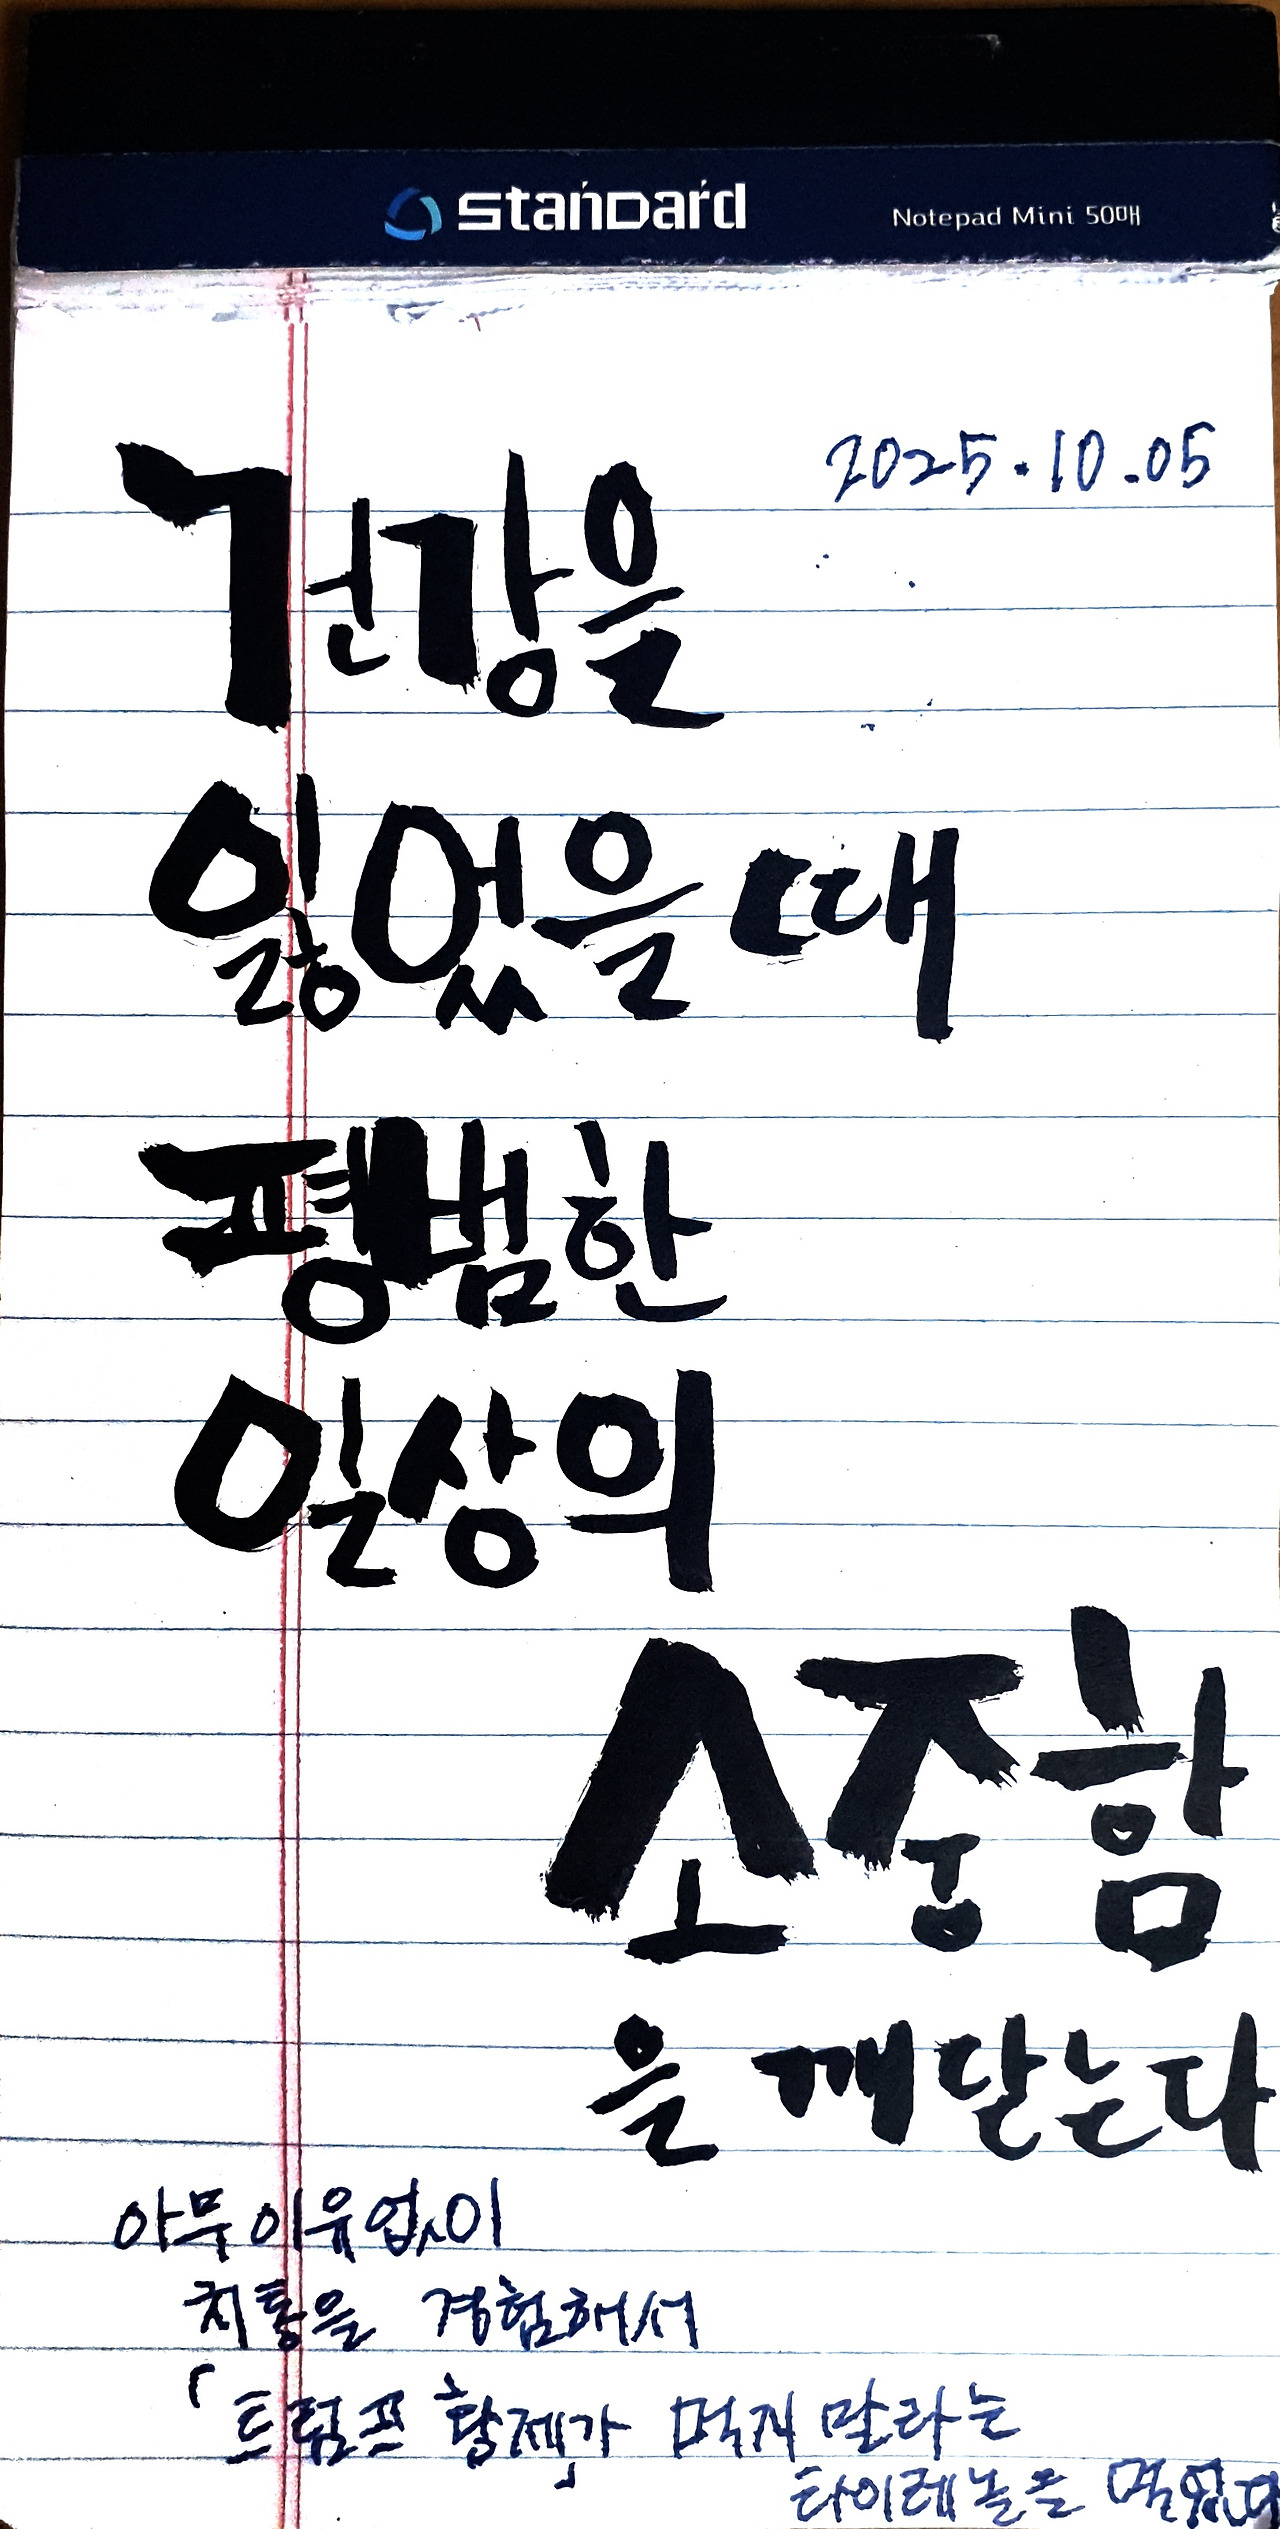 standard Notepad Mini 50매
2025.10.05
건강을
잃었을 때
평범한
일상의
소중함
을 깨닫는다
아무 이유 없이
치통을 경험해서
「트럼프 황제」가 먹지 말라는
타이레놀을 먹었다